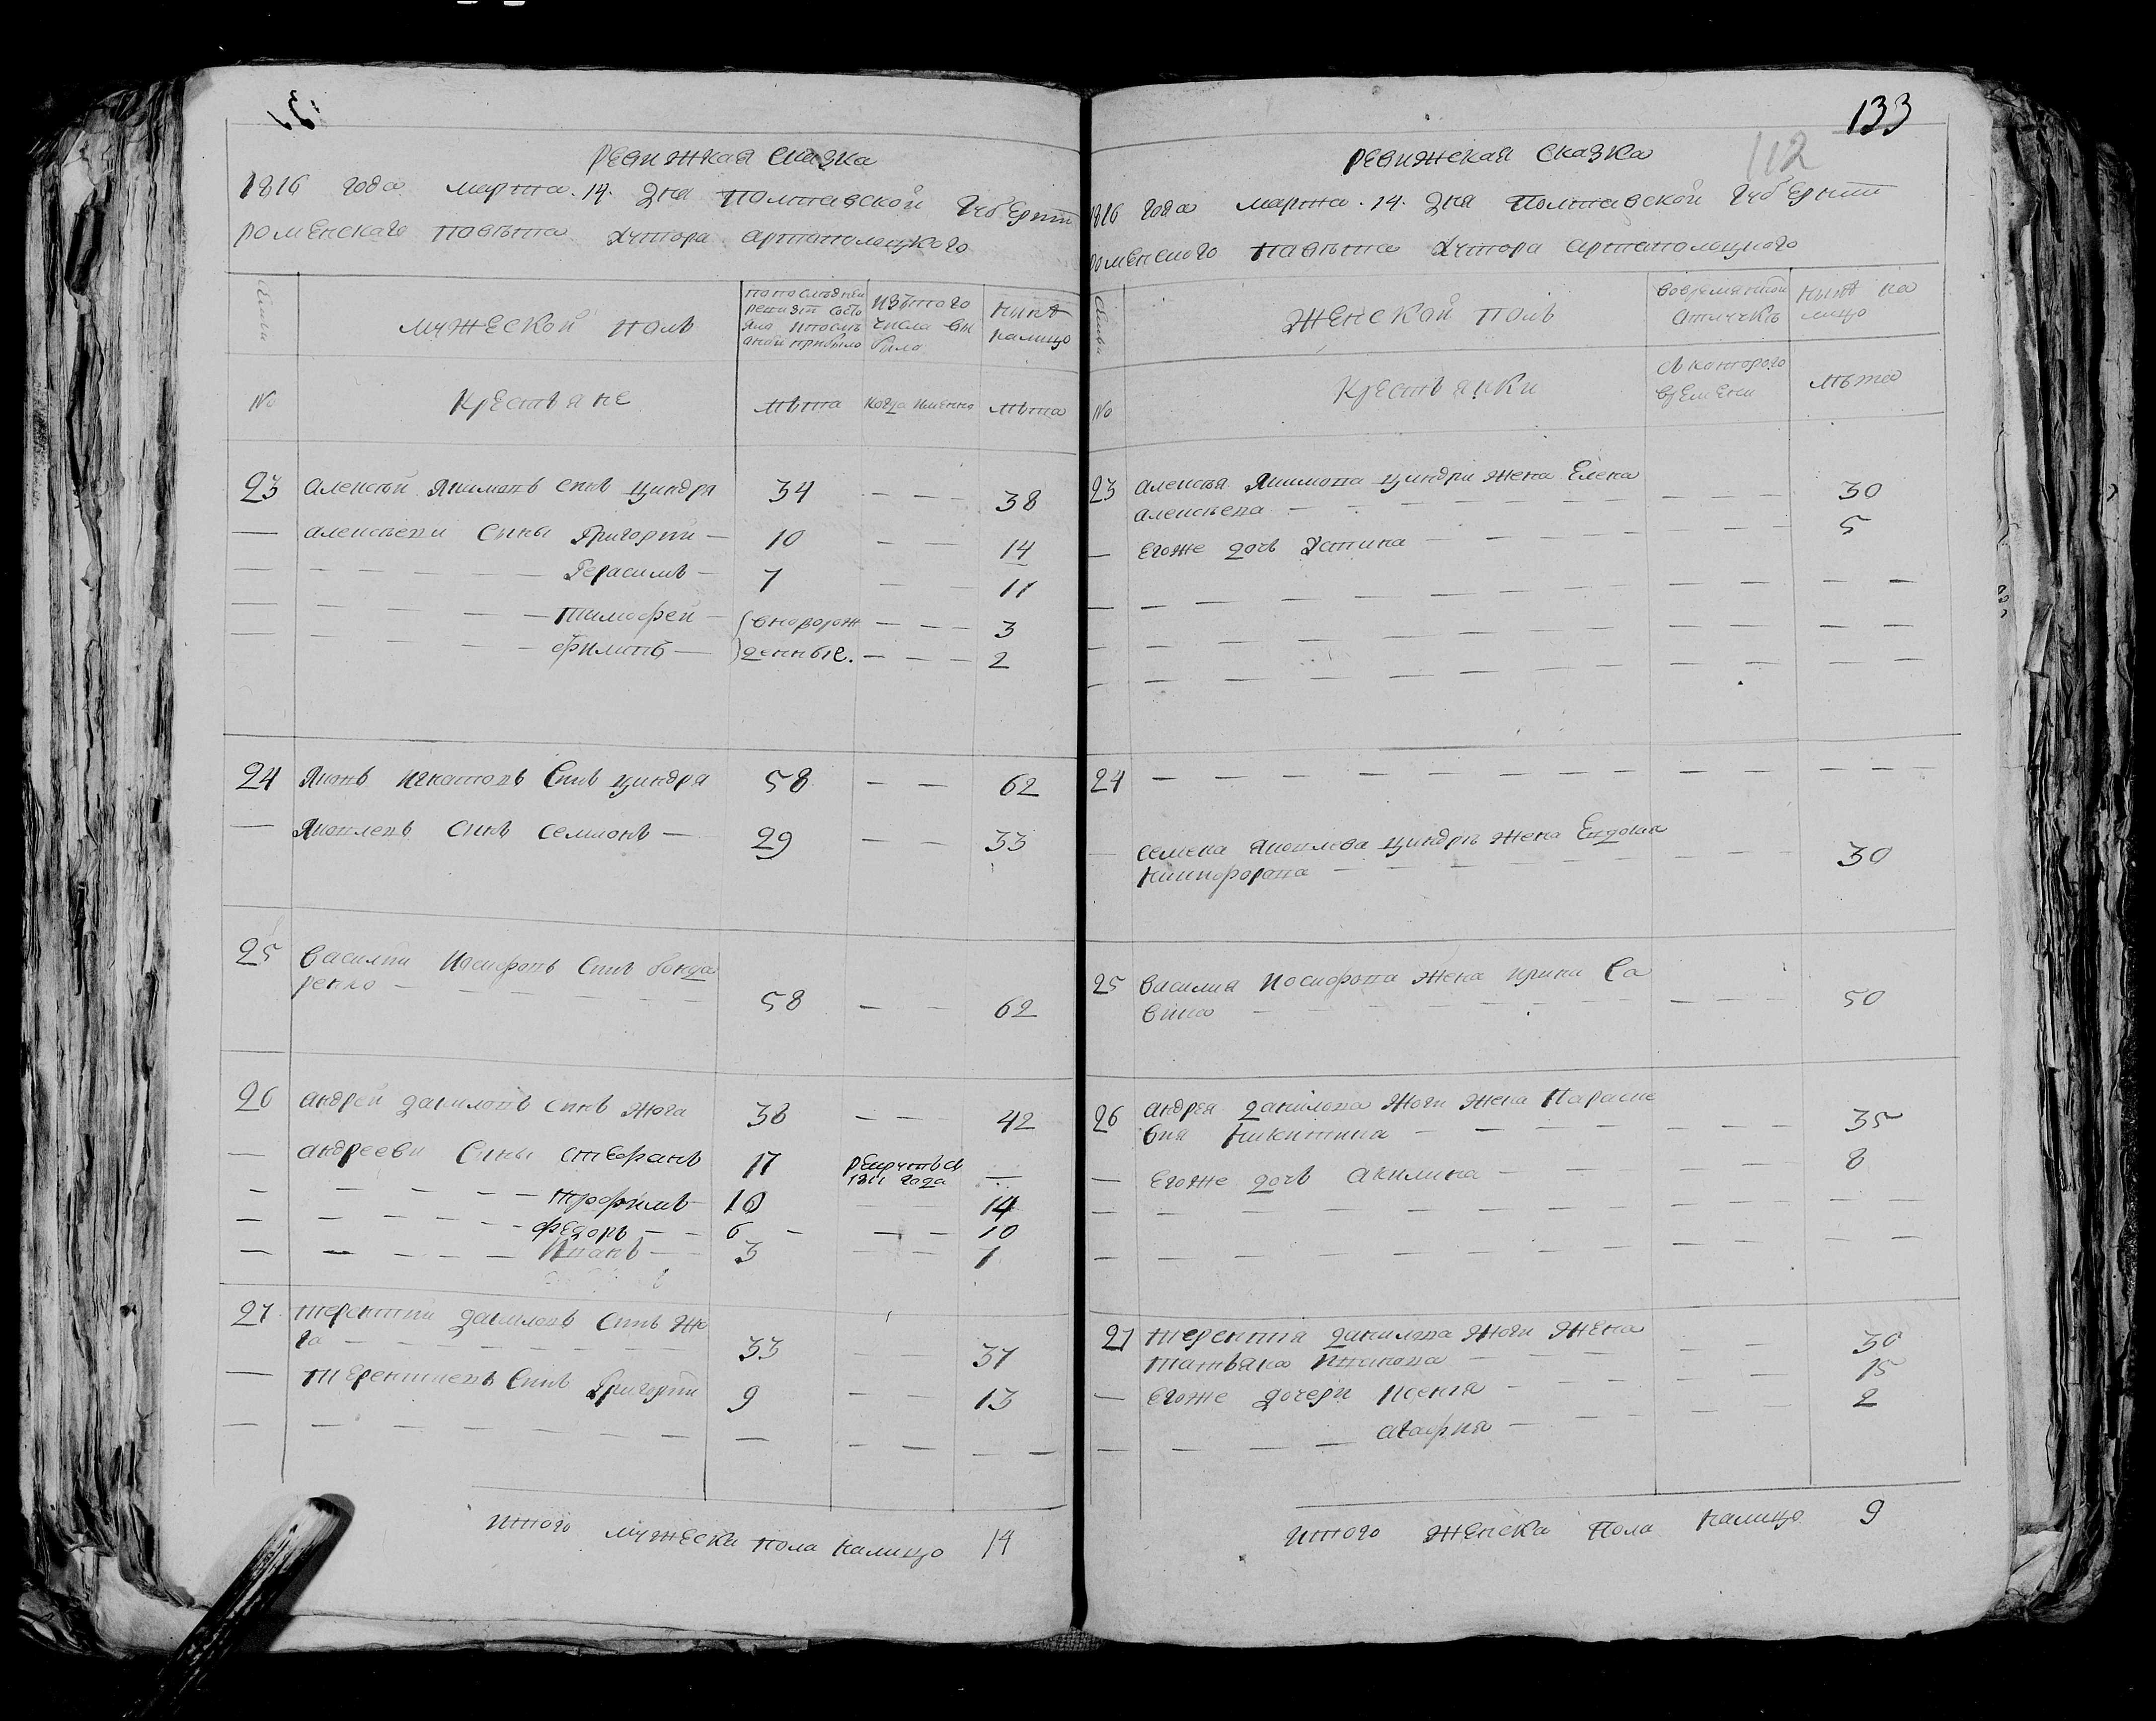 133
112
Ревижкая сказка
1816 года марта 14 дня Полтавской Губернии
Роменскаго повѣта хутора артаполоцкого
Семьи
Мужеской полъ
по последней ревизии состояло и после оной прибыло
изътого числа выбыло
нынѣ налицо
№
Крестьяне
лѣта
когда именно
лѣта
23 алексѣй Якимовъ синъ циндря 34 — — 38
— алексѣеви сины Григорий — 10 — — 14
Герасимъ — 7 — — 11
Тимофей — (вноворож — — — 3
Филипъ — )денные. — — — 2
24 Яковъ Игнатовъ Синъ циндря 58 — — 62
— Яковлевъ синъ Семионъ — 29 — — 33
25 Василий Иосифовъ Синъ бонда
ренко — 58 — — 62
26 андрей даниловъ синъ жога 38 — — 42
— андрееви Сины Стефанъ 17 рекрутъ съ 1811 года —
Трофимъ 10 — — 14
Федоръ — — 6 — — — 10
Иванъ — — 3 — — 7
27 терентий даниловъ Синъ жо
га — 33 — — 37
— терентиевъ Синъ Григорий 9 — — 13
итого мужеска пола налицо 14
Ревижская сказка
1816 года марта 14 дня Полтавской Губернии
Роменского повѣта хутора артаполоцкого
Семьи
Женской полъ
вовременной отлучкѣ
нынѣ на лицо
№
Крестьянки
съ которого времени
лѣта
23 алексѣя Якимова циндри жена Елена
алексѣева — 30
— Егоже дочь Устина — 5
24 — — —
Семена Яковлева циндрѣ жена Евдокия
Никифорова — 30
25 Василия Иосифова жена Ирина Са
вина — 50
26 андрея данилова жоги жена Параске
вия Никитина — 35
— Егоже дочь акилина — 8
27 терентия данилова жоги жена
татьяна Иванова — 30
— Егоже дочери Ксения — 15
агафия — 2
итого женска пола налицо 9